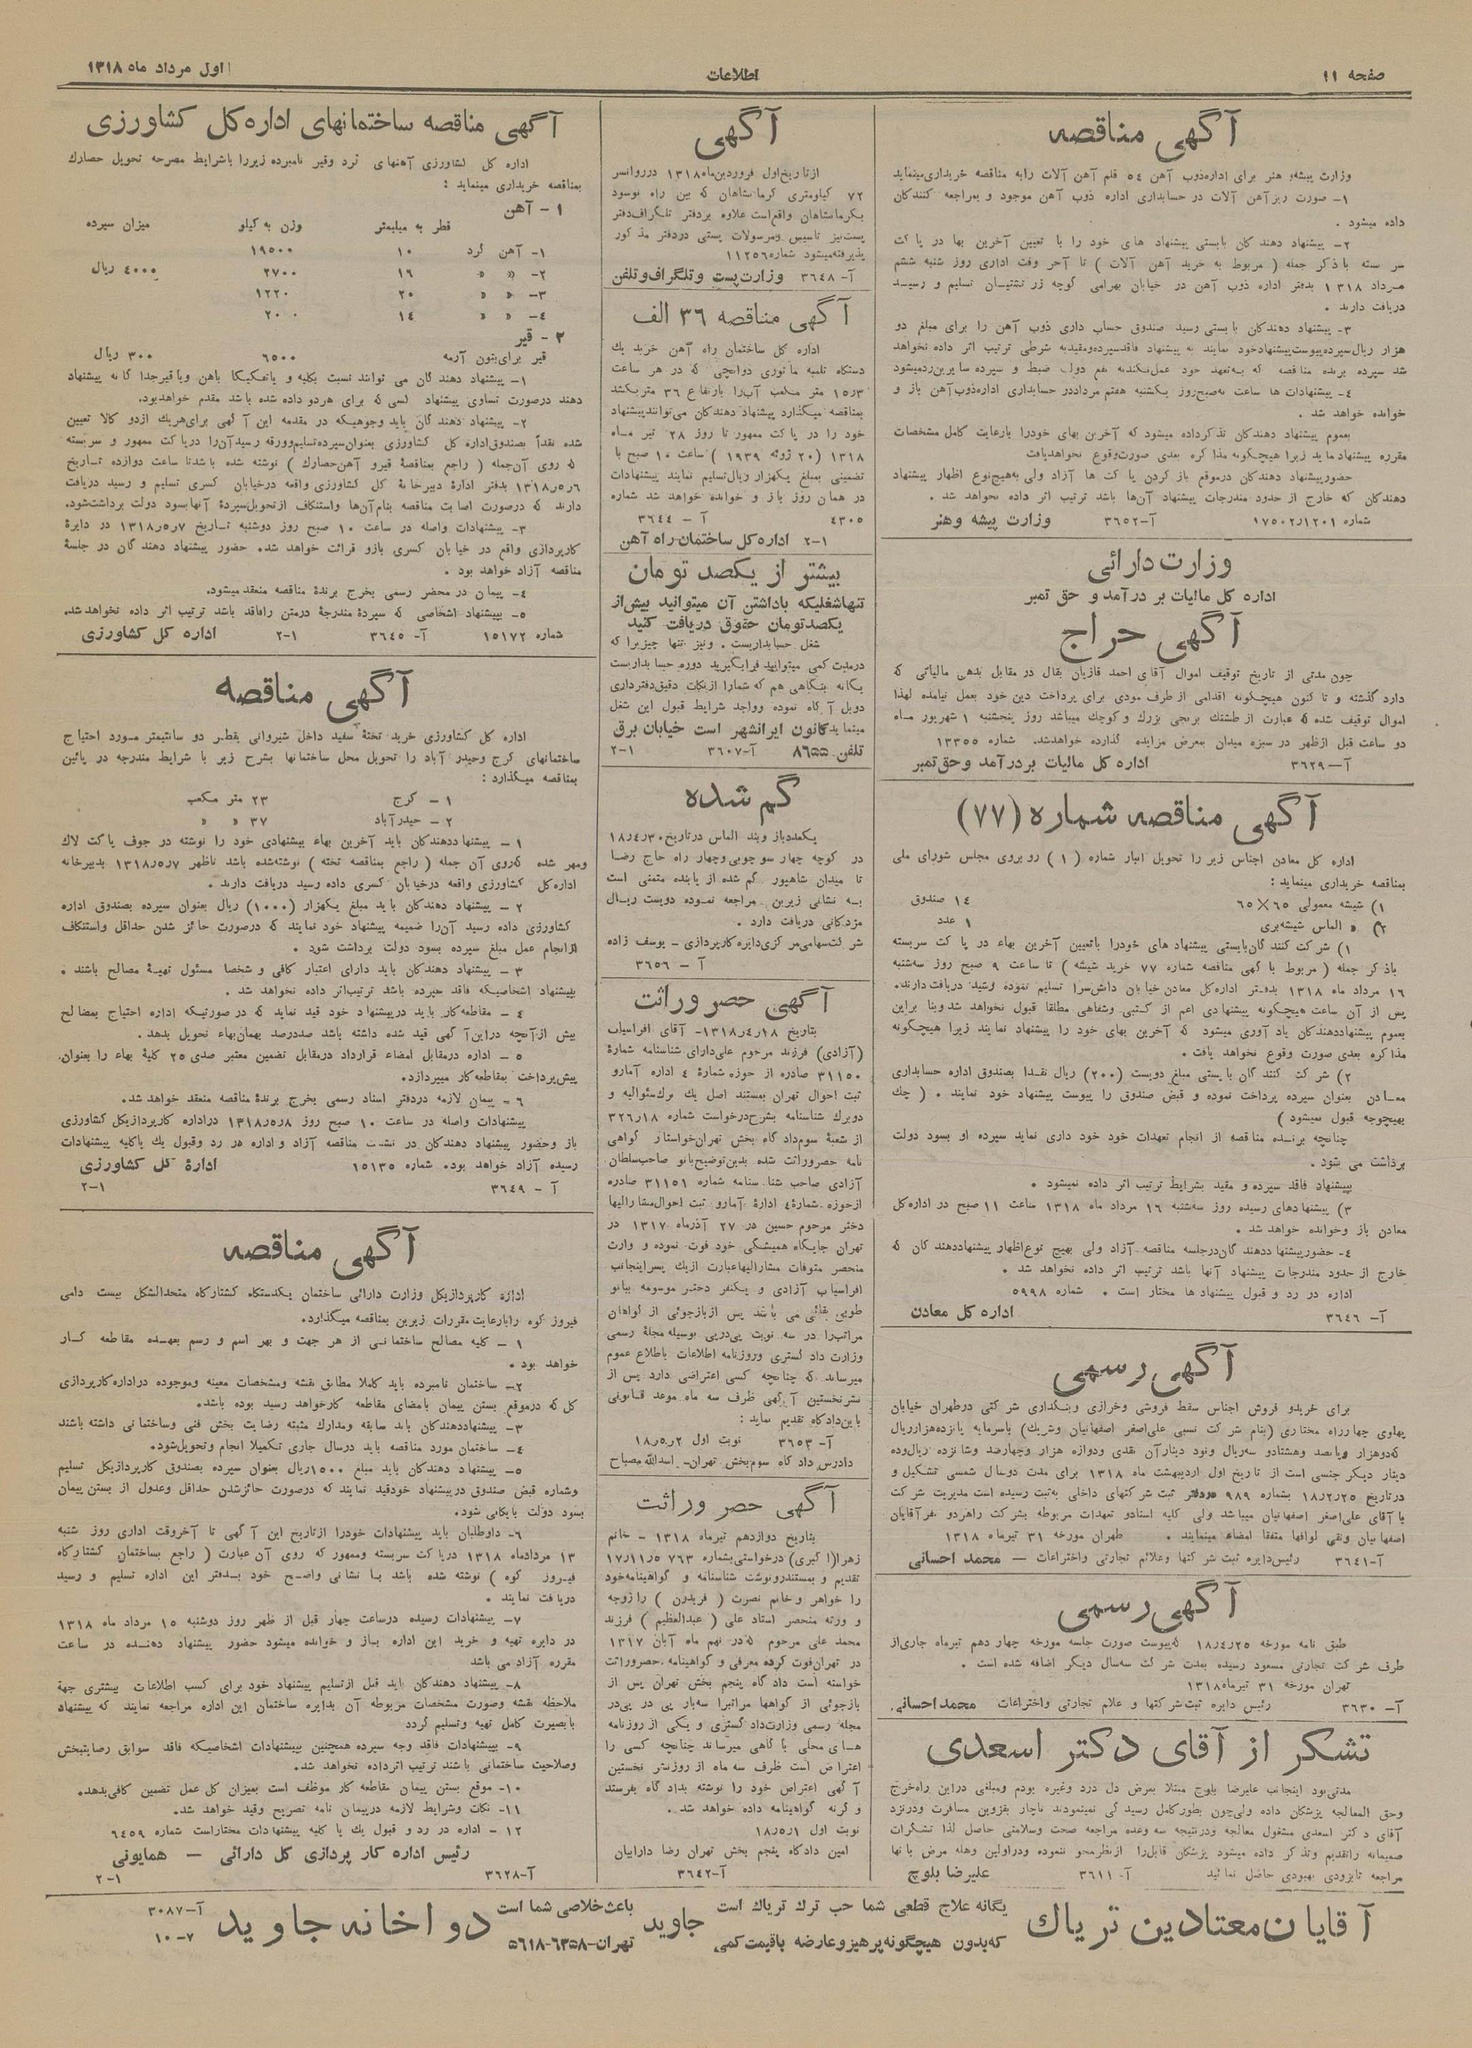 صفحه ۱۱
اطلاعات
اول مرداد ماه ۱۳۱۸
آگهی مناقصه
وزارت پیشه و هنر برای اداره ذوب آهن ۵۴ قلم آهن آلات را به مناقصه خریداری مینماید
۱- صورت ریز آهن آلات در حسابداری اداره ذوب آهن موجود و بمراجعه کنندگان
داده میشود .
۲- پیشنهاد دهندگان بایستی پیشنهاد های خود را با تعیین آخرین بها در پاکت
سر بسته با ذکر جمله ( مربوط به خرید آهن آلات ) تا آخر وقت اداری روز شنبه ششم
مرداد ۱۳۱۸ بدفتر اداره ذوب آهن در خیابان بهرامی کوچه زرتشتیان تسلیم و رسید
دریافت دارند .
۳- پیشنهاد دهندگان بایستی رسید صندوق حساب داری ذوب آهن را برای مبلغ دو
هزار ریال سپرده پیوست پیشنهاد خود نمایند به پیشنهاد فاقد سپرده و مقید به شرطی ترتیب اثر داده نخواهد
شد سپرده برنده مناقصه که به تعهد خود عمل نکند به نفع دولت ضبط و سپرده سایرین رد میشود
۴- پیشنهادات ساعت نه صبح روز یکشنبه هفتم مرداد در حسابداری اداره ذوب آهن باز و
خوانده خواهد شد .
بعموم پیشنهاد دهندگان تذکر داده میشود که آخرین بهای خود را با رعایت کامل مشخصات
مقرره پیشنهاد نماید زیرا هیچگونه مذاکره بعدی صورت وقوع نخواهد یافت
حضور پیشنهاد دهندگان در موقع باز کردن پاکت ها آزاد ولی به هیچ نوع اظهار پیشنهاد
دهندگان که خارج از حدود مندرجات پیشنهاد آن‌ها باشد ترتیب اثر داده نخواهد شد .
شماره ۱۷۵۰۲ر۱۲۰۱ آ-۳۶۵۲ وزارت پیشه و هنر
وزارت دارائی
اداره کل مالیات بر درآمد و حق تمبر
آگهی حراج
چون مدتی از تاریخ توقیف اموال آقای احمد قازیان بقال در مقابل بدهی مالیاتی که
دارد گذشته و تا کنون هیچگونه اقدامی از طرف مودی برای پرداخت دین خود بعمل نیامده لهذا
اموال توقیف شده که عبارت از طشتک برنجی بزرگ و کوچک میباشد روز پنجشنبه ۱ شهریور ماه
دو ساعت قبل از ظهر در سبزه میدان بمعرض مزایده گذارده خواهد شد. شماره ۱۳۳۵۵
آ-۳۶۲۹ اداره کل مالیات بر درآمد و حق تمبر
آگهی مناقصه شماره (۷۷)
اداره کل معادن اجناس زیر را تحویل انبار شماره ( ۱ ) روبروی مجلس شورای ملی
بمناقصه خریداری مینماید :
۱) شیشه معمولی ۶۵×۶۵ ۱۴ صندوق
۲) « الماس شیشه بری ۱ عدد
۱) شرکت کنندگان بایستی پیشنهاد های خود را با تعیین آخرین بهاء در پاکت سربسته
با ذکر جمله ( مربوط با گهی مناقصه شماره ۷۷ خرید شیشه ) تا ساعت ۹ صبح روز سه شنبه
۱۶ مرداد ماه ۱۳۱۸ بدفتر اداره کل معادن خیابان دانش سرا تسلیم نموده و رسید دریافت دارند.
پس از آن ساعت هیچگونه پیشنهادی اعم از کتبی و شفاهی مطلقا قبول نخواهد شد و بنا براین
بعموم پیشنهاد دهندگان یاد آوری میشود که آخرین بهای خود را پیشنهاد نمایند زیرا هیچگونه
مذاکره بعدی صورت وقوع نخواهد یافت .
۲) شرکت کنندگان بایستی مبلغ دویست (۲۰۰) ریال نقدا بصندوق اداره حسابداری
معادن بعنوان سپرده پرداخت نموده و قبض صندوق را پیوست پیشنهاد خود نمایند . ( چک
بهیچوجه قبول نمیشود )
چنانچه برنده مناقصه از انجام تعهدات خود خود داری نماید سپرده او بسود دولت
برداشت می شود .
بپیشنهاد فاقد سپرده و مقید بشرایط ترتیب اثر داده نمیشود .
۳) پیشنهادهای رسیده روز سه‌شنبه ۱۶ مرداد ماه ۱۳۱۸ ساعت ۱۱ صبح در اداره کل
معادن باز و خوانده خواهد شد .
۴- حضور پیشنهاد دهندگان در جلسه مناقصه آزاد ولی بهیچ نوع اظهار پیشنهاد دهندگان که
خارج از حدود مندرجات پیشنهاد آنها باشد ترتیب اثر داده نخواهد شد .
اداره در رد و قبول پیشنهاد ها مختار است . شماره ۵۹۹۸
آ- ۳۶۴۶ اداره کل معادن
آگهی رسمی
برای خرید و فروش اجناس سقط فروشی و خرازی و بنکداری شرکتی در طهران خیابان
پهلوی چهارراه مختاری (بنام شرکت نسبی علی اصغر اصفهانیان و شریک) با سرمایه پانزده هزار ریال
که دو هزار و پانصد و هشتاد و سه ریال و نود دینار آن نقدی و دوازده هزار و چهارصد و شانزده ریال و ده
دینار دیگر جنسی است از تاریخ اول اردیبهشت ماه ۱۳۱۸ برای مدت دو سال شمسی تشکیل و
در تاریخ ۱۸ر۲ر۲۵ بشماره ۹۸۹ در دفتر ثبت شرکتهای داخلی به ثبت رسیده است مدیریت شرکت
با آقای علی اصغر اصفهانیان میباشد ولی کلیه اسناد و تعهدات مربوطه بشرکت را هر دو نفر آقایان
اصفهانیان و نقی لوافها متفقا امضاء مینمایند . طهران مورخه ۳۱ تیر ماه ۱۳۱۸
آ-۳۶۴۱ رئیس دایره ثبت شرکتها و علائم تجارتی و اختراعات — محمد احسانی
آگهی رسمی
طبق نامه مورخه ۱۸ر۴ر۲۵ که پیوست صورت جلسه مورخه چهاردهم تیرماه جاری از
طرف شرکت تجارتی مسعود رسیده بمدت شرکت سه سال دیگر اضافه شده است .
تهران مورخه ۳۱ تیر ماه ۱۳۱۸
آ- ۳۶۳۰ رئیس دایره ثبت شرکتها و علائم تجارتی و اختراعات محمد احسانی
تشکر از آقای دکتر اسعدی
مدتی بود اینجانب علیرضا بلوچ مبتلا بمرض دل درد و غیره بودم و مبلغی در این راه خرج
وحق المعالجه پزشکان داده ولی چون بطور کامل رسیدگی نمینمودند ناچار بقزوین مسافرت و در نزد
آقای دکتر اسعدی مشغول معالجه و در نتیجه سه وعده مراجعه صحت و سلامتی حاصل لذا تشکرات
صمیمانه را تقدیم و تذکر داده میشود پزشکان قابل را از نظر محو ننموده و در اولین وهله مرض با نها
مراجعه تا بزودی بهبودی حاصل نمائید آ- ۳۶۱۱ علیرضا بلوچ
آگهی
از تاریخ اول فروردین ماه ۱۳۱۸ در روانسر
۷۲ کیلومتری کرمانشاهان که بین راه نوسود
بکرمانشاهان واقع است علاوه بر دفتر تلگراف دفتر
پست نیز تاسیس و مرسولات پستی در دفتر مذکور
پذیرفته میشود شماره ۱۱۲۵۶
آ- ۳۶۴۸ وزارت پست و تلگراف و تلفن
آگهی مناقصه ۳۶ الف
اداره کل ساختمان راه آهن خرید یک
دستگاه تلمبه ماتوری دوایچی که در هر ساعت
۱۵ر۳ متر مکعب آب را بارتفاع ۳۶ متر بکشد
بمناقصه میگذارد پیشنهاد دهندگان می‌توانند پیشنهاد
خود را در پاکت ممهور تا روز ۲۸ تیر ماه
۱۳۱۸ ( ۲۰ ژوئیه ۱۹۳۹ ) ساعت ۱۰ صبح با
تضمینی بمبلغ یکهزار ریال تسلیم نمایند پیشنهادات
در همان روز باز و خوانده خواهد شد شماره
۴۳۰۵ آ - ۳۶۴۴
۲-۱ اداره کل ساختمان راه آهن
بیشتر از یکصد تومان
تنها شغلیکه با داشتن آن میتوانید بیش از
یکصد تومان حقوق دریافت کنید
شغل حسابداریست . و نیز تنها چیزیرا که
در مدت کمی میتوانید فرا بگیرید دوره حسابداریست
یگانه بنگاهی هم که شما را از نکات دقیق دفتر داری
دوبل آگاه نموده و واجد شرایط قبول این شغل
مینماید کانون ایرانشهر است خیابان برق
تلفن ۸۶۵۵ آ-۳۶۰۷ ۲-۱
گم شده
یکعدد بازوبند الماس در تاریخ ۱۸ر۴ر۳۰
در کوچه چهار سو چوبی و چهار راه حاج رضا
تا میدان شاهپور گم شده از یابنده متمنی است
به نشانی زیرین مراجعه نموده دویست ریال
مژدگانی دریافت دارد .
شرکت سهامی مرکزی دایره کارپردازی - یوسف زاده
آ - ۳۶۵۶
آگهی حصر وراثت
بتاریخ ۱۳۱۸ر۴ر۱۸- آقای افراسیاب
(آزادی) فرزند مرحوم علی دارای شناسنامه شمارۀ
۳۱۱۵۰ صادره از حوزه شمارۀ ۴ اداره آمار و
ثبت احوال تهران بمستند اصل یک برگ سئوالیه و
دو برگ شناسنامه بشرح درخواست شماره ۳۲۶ر۱۸
از شعبۀ سوم دادگاه بخش تهران خواستار گواهی
نامه حصر وراثت شده بدین توضیح بانو صاحب سلطان
آزادی صاحب شناسنامه شماره ۳۱۱۵۱ صادره
از حوزه شمارۀ ۴ ادارۀ آمار و ثبت احوال مشار الیها
دختر مرحوم حسین در ۲۷ آذر ماه ۱۳۱۷ در
تهران جایگاه همیشگی خود فوت نموده و وارث
منحصر متوفات مشارالیها عبارت از یک پسر اینجانب
افراسیاب آزادی و یکنفر دختر موسومه ببانو
طوبی بقائی می باشد پس از بازجوئی از گواهان
مراتب را در سه نوبت پی در پی بوسیله مجلۀ رسمی
وزارت دادگستری و روزنامه اطلاعات باطلاع عموم
میرساند که چنانچه کسی اعتراضی دارد پس از
نشر نخستین آگهی ظرف سه ماه موعد قانونی
باین دادگاه تقدیم نماید :
آ- ۳۶۵۳ نوبت اول ۱۸ر۵ر۲
دادرس دادگاه سوم بخش تهران- اسدالله مصباح
آگهی حصر وراثت
بتاریخ دوازدهم تیر ماه ۱۳۱۸ - خانم
زهرا (اکبری) درخواستی بشماره ۷۶۳ ۱۷ر۱۱ر۵
تقدیم و بمستند رونوشت شناسنامه و گواهینامه خود
را خواهر و خانم نصرت ( فریدزن ) را زوجه
و ورثه منحصر استاد علی ( عبدالعظیم ) فرزند
محمد علی مرحوم که در نهم ماه آبان ۱۳۱۷
در تهران فوت کرده معرفی و گواهینامه حصر وراثت
خواسته است دادگاه پنجم بخش تهران پس از
بازجوئی از گواهها مراتب را سه بار پی در پی در
مجله رسمی وزارت دادگستری و یکی از روزنامه
های محلی با گاهی میرساند چنانچه کسی را
اعتراض است ظرف سه ماه از روز نشر نخستین
آگهی اعتراض خود را نوشته بدادگاه بفرستد
و گرنه گواهینامه داده خواهد شد .
نوبت اول ۱۸ر۵ر۱
امین دادگاه پنجم بخش تهران رضا دارابیان
آ-۳۶۴۲
آگهی مناقصه ساختمانهای اداره کل کشاورزی
اداره کل کشاورزی آهنهای گرد و قیر نامبرده زیر را با شرایط مصرحه تحویل حصارک
بمناقصه خریداری مینماید :
۱ - آهن
قطر به میلیمتر وزن به کیلو میزان سپرده
۱- آهن گرد ۱۰ ۱۹۵۰۰
۲- « « ۱۶ ۲۷۰۰ ۴۰۰۰ ریال
۳- « « ۲۰ ۱۲۲۰
۴- « « ۱۴ ۲۰۰
۲ - قیر
قیر برای بتون آرمه ۶۵۰۰ ۳۰۰ ریال
۱- پیشنهاد دهندگان می توانند نسبت بکلیه و یا تفکیکا باهن و یا قیر جداگانه پیشنهاد
دهند در صورت تساوی پیشنهاد کسی که برای هر دو داده شده باشد مقدم خواهد بود.
۲- پیشنهاد دهندگان باید وجوهیکه در مقدمه این آگهی برای هر یک از دو کالا تعیین
شده نقداً بصندوق اداره کل کشاورزی بعنوان سپرده تسلیم و ورقه رسید آن را در پاکت ممهور و سربسته
که روی آن جمله ( راجع بمناقصۀ قیر و آهن حصارک ) نوشته شده باشد تا ساعت دوازده تاریخ
۱۳۱۸ر۵ر۶ بدفتر ادارۀ دبیرخانۀ کل کشاورزی واقعه در خیابان کسری تسلیم و رسید دریافت
دارند که در صورت اصابت مناقصه بنام آن‌ها و استنکاف از تحویل سپردۀ آنها بسود دولت برداشت شود.
۳- پیشنهادات واصله در ساعت ۱۰ صبح روز دوشنبه تاریخ ۱۳۱۸ر۵ر۷ در دایرۀ
کارپردازی واقع در خیابان کسری باز و قرائت خواهد شد. حضور پیشنهاد دهندگان در جلسۀ
مناقصه آزاد خواهد بود .
۴- پیمان در محضر رسمی بخرج برندۀ مناقصه منعقد میشود.
۵- بپیشنهاد اشخاصی که سپردۀ مندرجۀ در متن را فاقد باشد ترتیب اثر داده نخواهد شد.
شماره ۱۵۱۷۲ آ- ۳۶۴۵ ۲-۱ اداره کل کشاورزی
آگهی مناقصه
اداره کل کشاورزی خرید تختۀ سفید داخل شیروانی بقطر دو سانتیمتر مورد احتیاج
ساختمانهای کرج و حیدرآباد را تحویل محل ساختمانها بشرح زیر با شرایط مندرجه در پائین
بمناقصه میگذارد :
۱ - کرج ۲۳ متر مکعب
۲ - حیدرآباد ۳۷ « «
۱ - پیشنهاد دهندگان باید آخرین بهاء پیشنهادی خود را نوشته در جوف پاکت لاک
و مهر شده که روی آن جمله ( راجع بمناقصه تخته ) نوشته شده باشد تا ظهر ۱۳۱۸ر۵ر۷ بدبیرخانه
اداره کل کشاورزی واقعه در خیابان کسری داده رسید دریافت دارند .
۲ - پیشنهاد دهندگان باید مبلغ یکهزار (۱۰۰۰) ریال بعنوان سپرده بصندوق اداره
کشاورزی داده رسید آن را ضمیمه پیشنهاد خود نمایند که در صورت حائز شدن حداقل و استنکاف
از انجام عمل مبلغ سپرده بسود دولت برداشت شود .
۳ - پیشنهاد دهندگان باید دارای اعتبار کافی و شخصا مسئول تهیۀ مصالح باشند .
بپیشنهاد اشخاصیکه فاقد سپرده باشد ترتیب اثر داده نخواهد شد .
۴ - مقاطعه کار باید در پیشنهاد خود قید نماید که در صورتیکه اداره احتیاج بمصالح
بیش از آنچه در این آگهی قید شده داشته باشد صد درصد بهمان بهاء تحویل بدهد .
۵ - اداره در مقابل امضاء قرارداد در مقابل تضمین معتبر صدی ۲۵ کلیۀ بهاء را بعنوان
پیش پرداخت بمقاطعه کار میپردازد.
۶ - پیمان لازمه در دفتر اسناد رسمی بخرج برندۀ مناقصه منعقد خواهد شد.
پیشنهادات واصله در ساعت ۱۰ صبح روز ۱۳۱۸ر۵ر۸ در اداره کارپردازی کل کشاورزی
باز و حضور پیشنهاد دهندگان در نشست مناقصه آزاد و اداره در رد و قبول یک یا کلیه پیشنهادات
رسیده آزاد خواهد بود. شماره ۱۵۱۳۵ ادارۀ کل کشاورزی
آ - ۳۶۴۹ ۲-۱
آگهی مناقصه
اداره کارپردازی کل وزارت دارائی ساختمان یکدستگاه کشتارگاه متحدالشکل بیست دامی
فیروز کوه را با رعایت مقررات زیرین بمناقصه میگذارد.
۱ - کلیه مصالح ساختمانی از هر جهت و بهر اسم و رسم بعهده مقاطعه کار
خواهد بود .
۲- ساختمان نامبرده باید کاملا مطابق نقشه و مشخصات معینه و موجوده در اداره کارپردازی
کل که در موقع بستن پیمان بامضای مقاطعه کار خواهد رسید بوده باشد.
۳- پیشنهاد دهندگان باید سابقه و مدارک مثبته رضایت بخش فنی و ساختمانی داشته باشند
۴- ساختمان مورد مناقصه باید در سال جاری تکمیلا انجام و تحویل شود.
۵- پیشنهاد دهندگان باید مبلغ ۱۵۰۰ ریال بعنوان سپرده بصندوق کارپردازی کل تسلیم
و شماره قبض صندوق در پیشنهاد خود قید نمایند که در صورت حائز شدن حداقل و عدول از بستن پیمان
بسود دولت بایگانی شود.
۶- داوطلبان باید پیشنهادات خود را از تاریخ این آگهی تا آخر وقت اداری روز شنبه
۱۳ مرداد ماه ۱۳۱۸ در پاکت سربسته و ممهور که روی آن عبارت ( راجع بساختمان کشتارگاه
فیروز کوه ) نوشته شده باشد با نشانی واضح خود بدفتر این اداره تسلیم و رسید
دریافت نمایند .
۷- پیشنهادات رسیده در ساعت چهار قبل از ظهر روز دوشنبه ۱۵ مرداد ماه ۱۳۱۸
در دایره تهیه و خرید این اداره باز و خوانده میشود حضور پیشنهاد دهنده در ساعت
مقرره آزاد می باشد
۸- پیشنهاد دهندگان باید قبل از تسلیم پیشنهاد خود برای کسب اطلاعات بیشتری جهة
ملاحظه نقشه و صورت مشخصات مربوطه آن بدایره ساختمان این اداره مراجعه نمایند که پیشنهاد
با بصیرت کامل تهیه و تسلیم گردد
۹- بپیشنهادات فاقد وجه سپرده همچنین بپیشنهادات اشخاصیکه فاقد سوابق رضایتبخش
و صلاحیت ساختمانی باشند ترتیب اثر داده نخواهد شد.
۱۰- موقع بستن پیمان مقاطعه کار موظف است بمیزان کل عمل تضمین کافی بدهد.
۱۱- نکات و شرایط لازمه در پیمان نامه تصریح و قید خواهد شد.
۱۲- اداره در رد و قبول یک یا کلیه پیشنهادات مختار است شماره ۶۴۵۹
رئیس اداره کار پردازی کل دارائی — همایونی
آ-۳۶۲۸ ۲-۱
آقایان معتادین تریاک
یگانه علاج قطعی شما حب ترک تریاک است
که بدون هیچگونه پرهیز و عارضه با قیمت کمی
جاوید
باعث خلاصی شما است
تهران-۶۳۵۸-۵۶۱۸
دواخانه جاوید
آ-۳۰۸۷
۱۰-۷